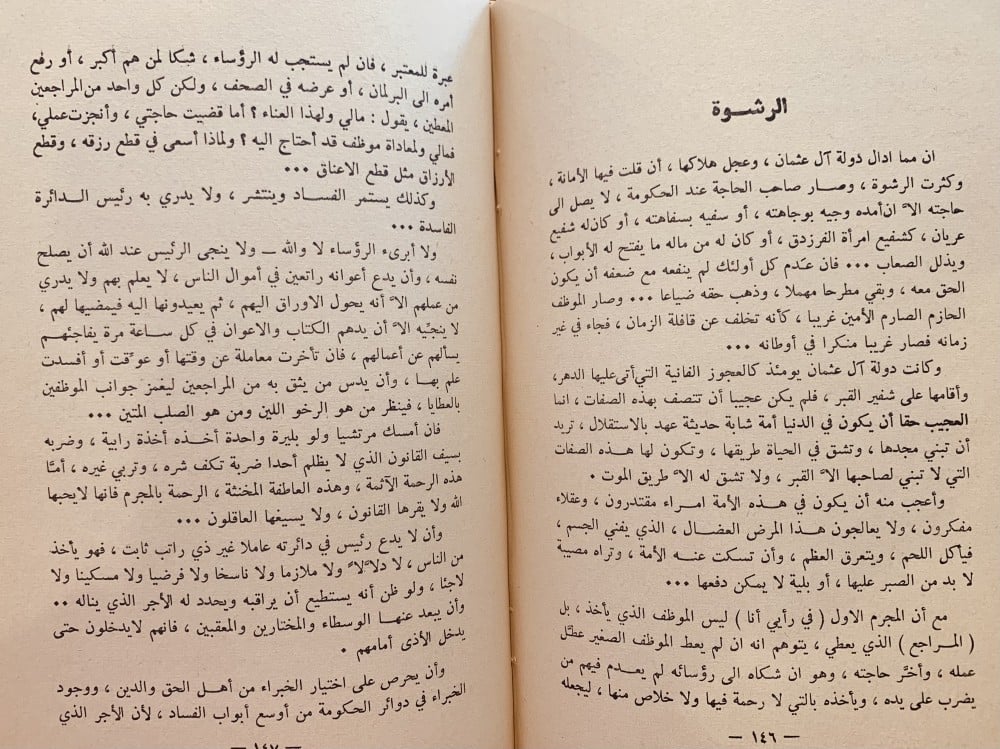 الرشـوة
ان مما ادال دولة آل عثمان ، وعجل هلاكها ، أن قلت فيها الأمانة ،
وكثرت الرشوة ، وصار صاحب الحاجة عند الحكومة ، لا يصل الى
حاجته الاّ ان أمده وجيه بوجاهته ، أو سفيه بسفاهته ، أو كان له شفيع
عريان ، كشفيع امرأة الفرزدق ، أو كان له من ماله ما يفتح له الأبواب ،
ويذلل الصعاب ... فان عدم كل أولئك لم ينفعه مع ضعفه أن يكون
الحق معه ، وبقي مطرحا مهملا ، وذهب حقه ضياعا ... وصار الموظف
الحازم الصارم الأمين غريبا ، كأنه تخلف عن قافلة الزمان ، فجاء في غير
زمانه فصار غريبا منكرا في أوطانه ...
وكانت دولة آل عثمان يومئذ كالعجوز الفانية التي أتى عليها الدهر،
وأقامها على شفير القبر ، فلم يكن عجيبا أن تتصف بهذه الصفات ، انما
العجيب حقا أن يكون في الدنيا أمة شابة حديثة عهد بالاستقلال ، تريد
أن تبني مجدها ، وتشق في الحياة طريقها ، وتكون لها هـذه الصفات
التي لا تبني لصاحبها الاّ القبر ، ولا تشق له الاّ طريق الموت .
وأعجب منه أن يكون في هـذه الأمة امـراء مقتدرون ، وعقلاء
مفكرون ، ولا يعالجون هـذا المرض العضـال ، الذي يفني الجسم ،
فيأكل اللحم ، ويتعرق العظم ، وأن تسكت عنـه الأمة ، وتراه مصيبة
لا بد من الصبر عليها ، أو بلية لا يمكن دفعها ...
مع أن المجرم الاول ( في رأيي أنا ) ليس الموظف الذي يأخذ ، بل
( المـراجع ) الذي يعطي ، يتوهم انه ان لم يعط الموظف الصغير عطّل
عمله ، وأخّر حاجته ، وهو ان شكاه الى رؤسائه لم يعـدم فيهم من
يضرب على يده ، ويأخذه بالتي لا رحمة فيها ولا خلاص منها ، ليجعله
— ١٤٦ —
عبرة للمعتبر ، فان لم يستجب له الرؤساء ، شكا لمن هم أكبر ، أو رفع
أمره الى البرلمان ، أو عرضه في الصحف ، ولكن كل واحد من المراجعين
المعطين ، يقول : مالي ولهذا العناء ؟ أما قضيت حاجتي ، وأنجزت عملي،
فمالي ولمعاداة موظف قد أحتاج اليه ؟ ولماذا أسعى في قطع رزقه ، وقطع
الأرزاق مثل قطع الاعناق ...
وكذلك يستمر الفسـاد وينتشر ، ولا يدري به رئيس الـدائرة
الفاسدة ...
ولا أبرىء الرؤساء لا والله — ولا ينجى الرئيس عند الله أن يصلح
نفسه ، وأن يدع أعوانه راتعين في أموال الناس ، لا يعلم بهم ولا يدري
من عملهم الاّ أنه يحول الاوراق اليهم ، ثم يعيدونها اليه فيمضيها لهم ،
لا ينجيّه الاّ أن يدهم الكتاب والاعوان في كل سـاعة مرة يفاجئهـم
يسألهم عن أعمالهم ، فان تأخرت معاملة عن وقتها أو عوّقت أو أفسدت
علم بهـا ، وأن يدس من يثق به من المراجعين ليغمز جوانب الموظفين
بالعطايا ، فينظر من هـو الرخو اللين ومن هـو الصلب المتين ...
فان أمسك مرتشيا ولو بليرة واحدة أخـذه أخذة رابية ، وضربه
بسيف القانون الذي لا يظلم أحدا ضربة تكف شره ، وتربي غيره ، أمّا
هذه الرحمة الآثمة ، وهذه العاطفة المخنثة ، الرحمة بالمجرم فانها لايحبها
الله ولا يقرها القانون ، ولا يسيغها العاقلون ...
وأن لا يدع رئيس في دائرته عاملا غير ذي راتب ثابت ، فهو يأخذ
من الناس ، لا دلاّلاً ولا ملازما ولا ناسخا ولا فرضيا ولا مسكينا ولا
لاجئا ، ولو ظن أنه يستطيع أن يراقبه ويحدد له الأجر الذي يناله ..
وأن يبعد عنهـا الوسطاء والمختارين والمعقبين ، فانهم لايدخلون حتى
يدخل الأذى أمامهم .
وأن يحرص على اختيار الخبراء من أهـل الحق والدين ، ووجود
الخبراء في دوائر الحكومة من أوسع أبواب الفساد ، لأن الأجر الذي
— ١٤٧ —